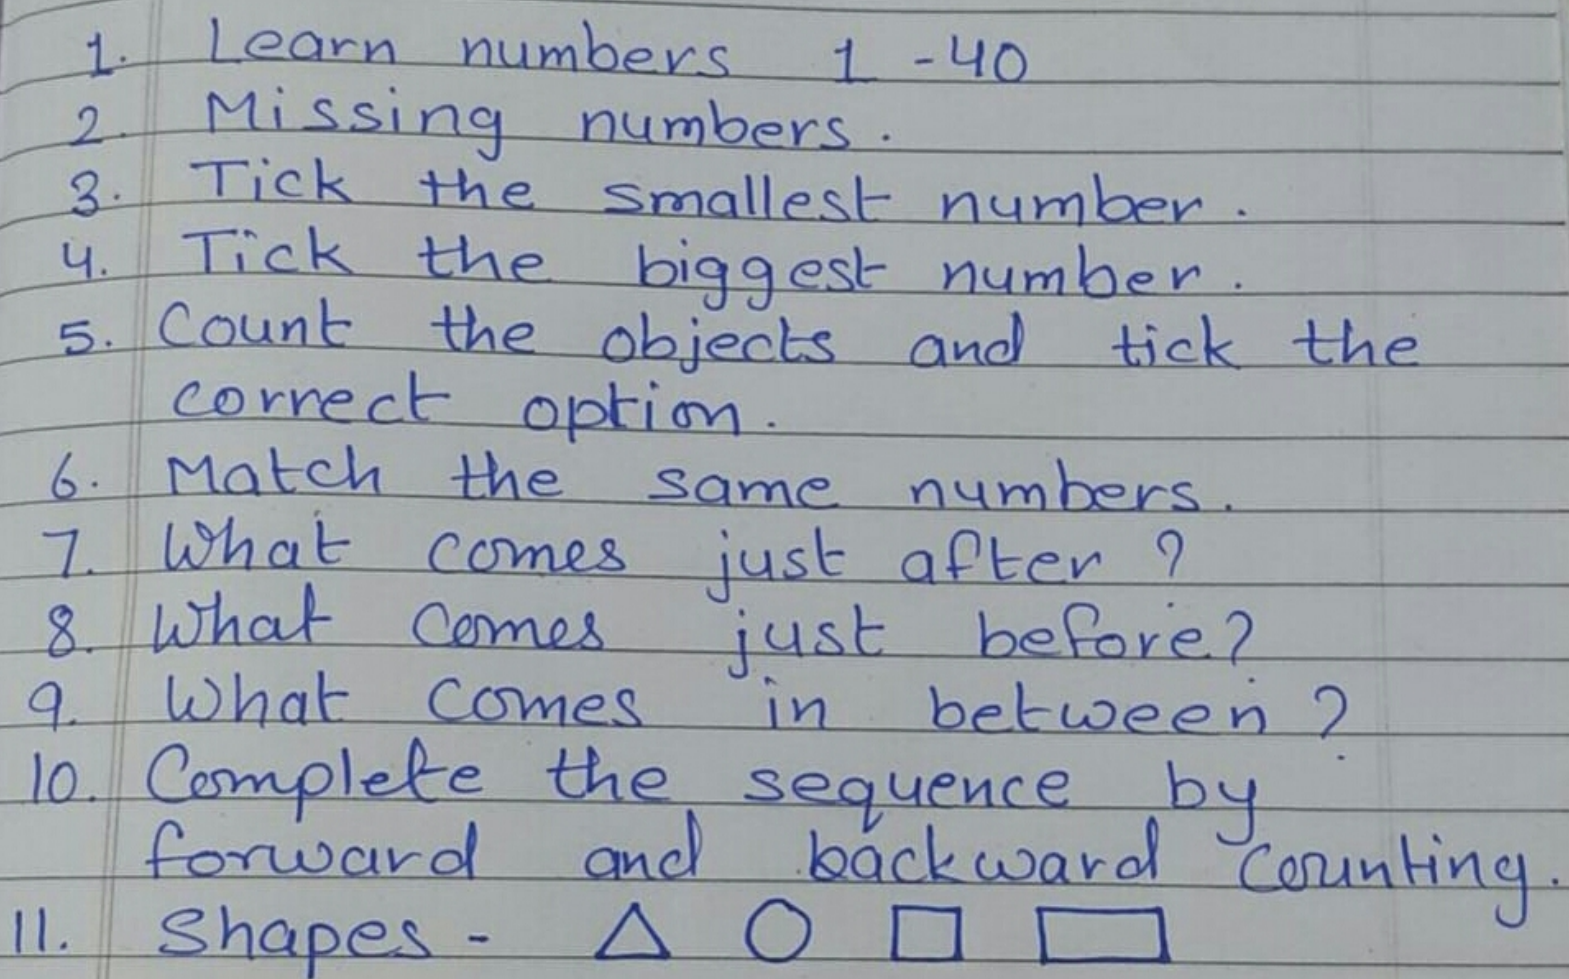 1. Learn numbers 1 - 40
2. Missing numbers.
3. Tick the smallest number.
4. Tick the biggest number.
5. Count the objects and tick the
correct option.
6. Match the same numbers.
7. What comes just after ?
8. What comes just before?
9. What comes in between ?
10. Complete the sequence by
forward and backward counting.
11. Shapes -